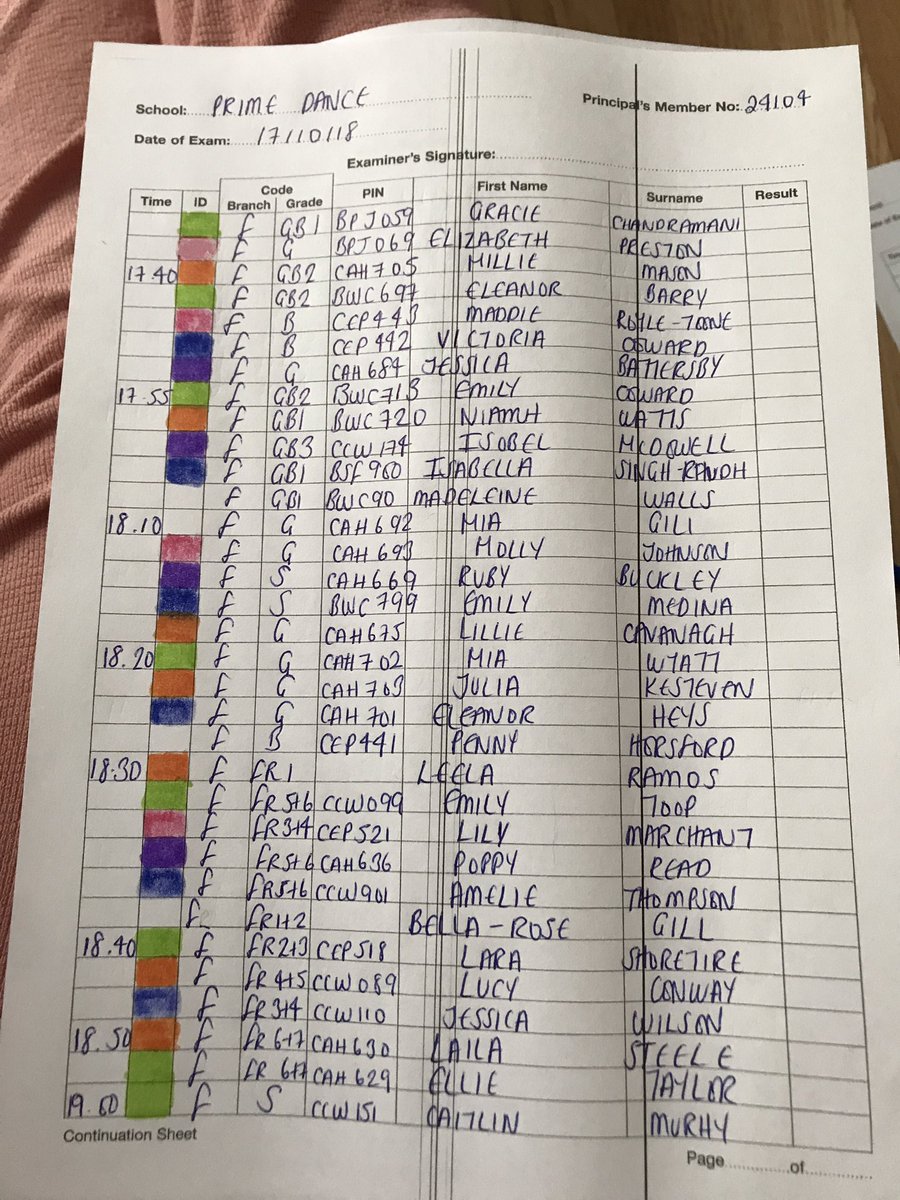 School: PRIME DANCE Principal's Member No: 24104
Date of Exam: 17/10/18
Examiner's Signature:
Time ID Code Branch Grade PIN First Name Surname Result
f GB1 BPJ059 GRACIE CHANDRAMANI
f G BPJ069 ELIZABETH PRESTON
17.40 f GB2 CAH705 MILLIE MASON
f GB2 BWC697 ELEANOR BARRY
f B CEP443 MADDIE ROYLE-TOONE
f B CEP442 VICTORIA OSWARD
f G CAH684 JESSICA BATTERSBY
17.55 f GB2 BWC713 EMILY OSWARD
f GB1 BWC720 NIAMH WATTS
f GB3 CCW174 ISOBEL MCDOWELL
f GB1 BSF960 ISABELLA SINGH-RANDH
f GB1 BWC90 MADELEINE WALLS
18.10 f G CAH692 MIA GILI
f G CAH693 MOLLY JOHNSON
f S CAH669 RUBY BUCKLEY
f S BWC799 EMILY MEDINA
f G CAH675 LILLIE CAVANAGH
18.20 f G CAH702 MIA WYATT
f G CAH703 JULIA KESTEVEN
f G CAH701 ELEANOR HEYS
f B CEP441 PENNY HORSFORD
18:30 f FR1 LEELA RAMOS
f FR5+6 CCW099 EMILY TOOP
f FR3+4 CEP521 LILY MARCHANT
f FR5+6 CAH636 POPPY READ
f FR5+6 CCW901 AMELIE THOMPSON
f FR1+2 BELLA-ROSE GILL
18.40 f FR2+3 CEP518 LARA SHORETIRE
f FR4+5 CCW089 LUCY CONWAY
f FR3+4 CCW110 JESSICA WILSON
18.50 f FR6+7 CAH630 LAILA STEELE
f FR6+7 CAH629 ELLIE TAYLOR
19.00 f S CCW151 CAITLIN MURHY
Continuation Sheet
Page of